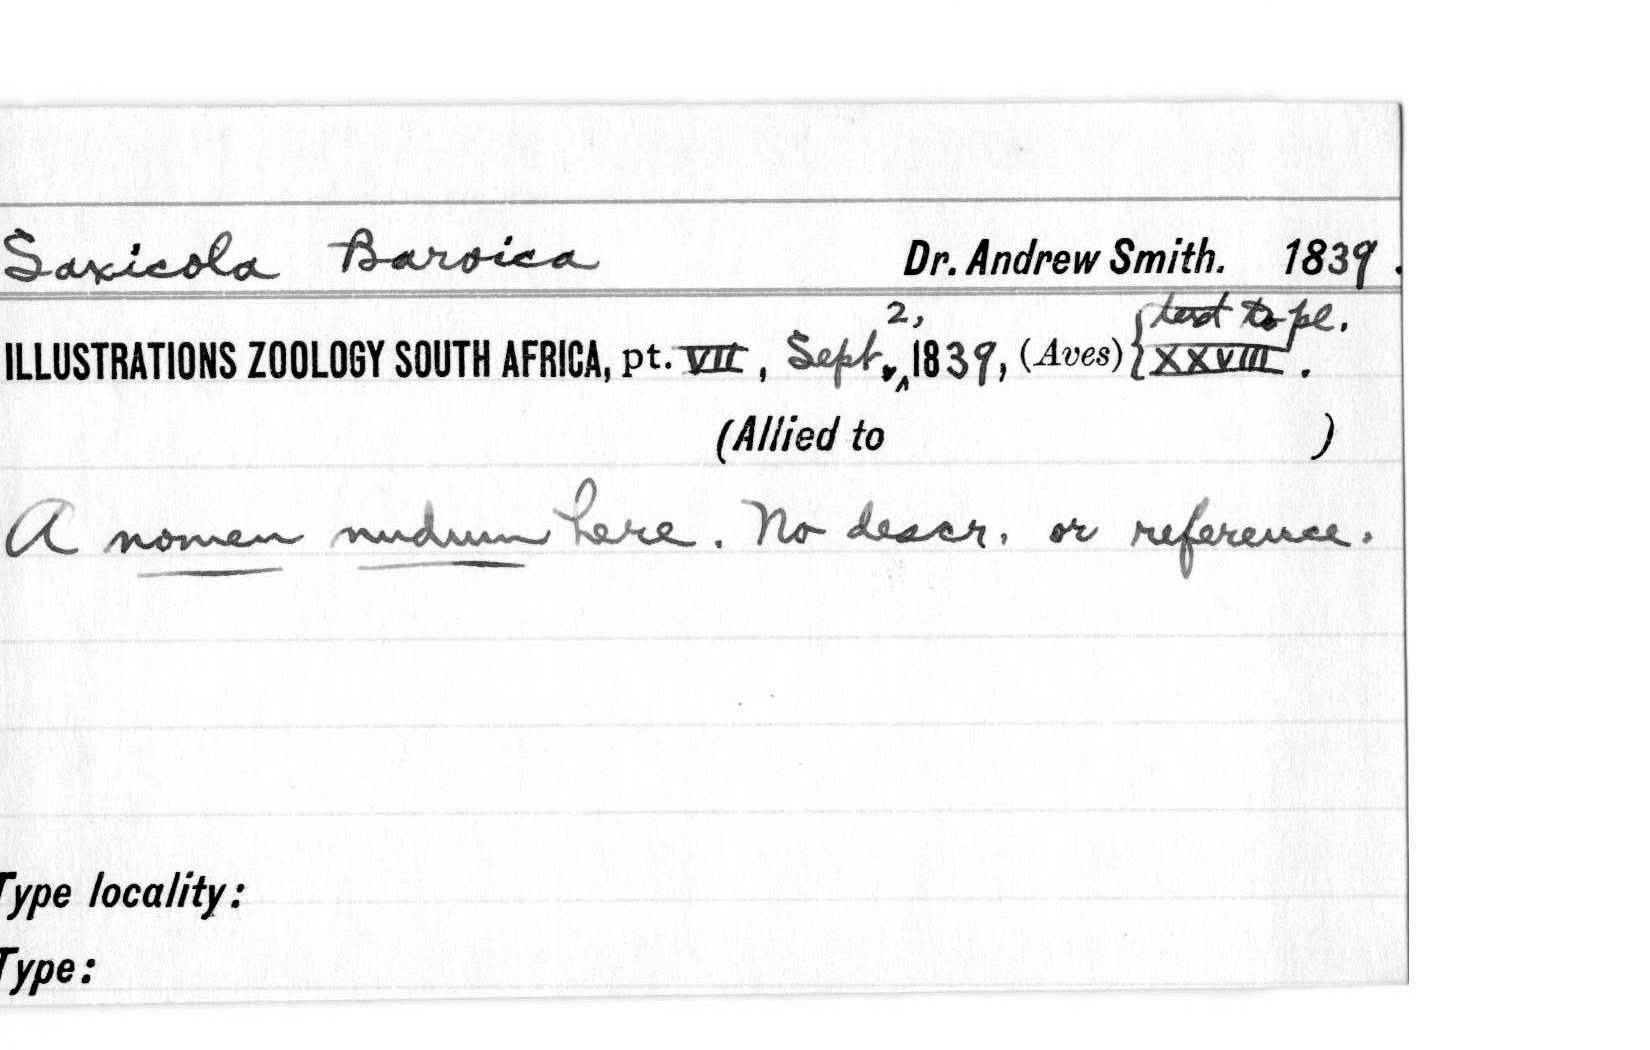 Saxicola Baroica Dr. Andrew Smith. 1839.
2, {text to pl.
ILLUSTRATIONS ZOOLOGY SOUTH AFRICA, pt. VII, Sept. ‸1839, (Aves) XXVIII.
(Allied to )
A nomen nudum here. No descr. or reference.
Type locality:
Type: